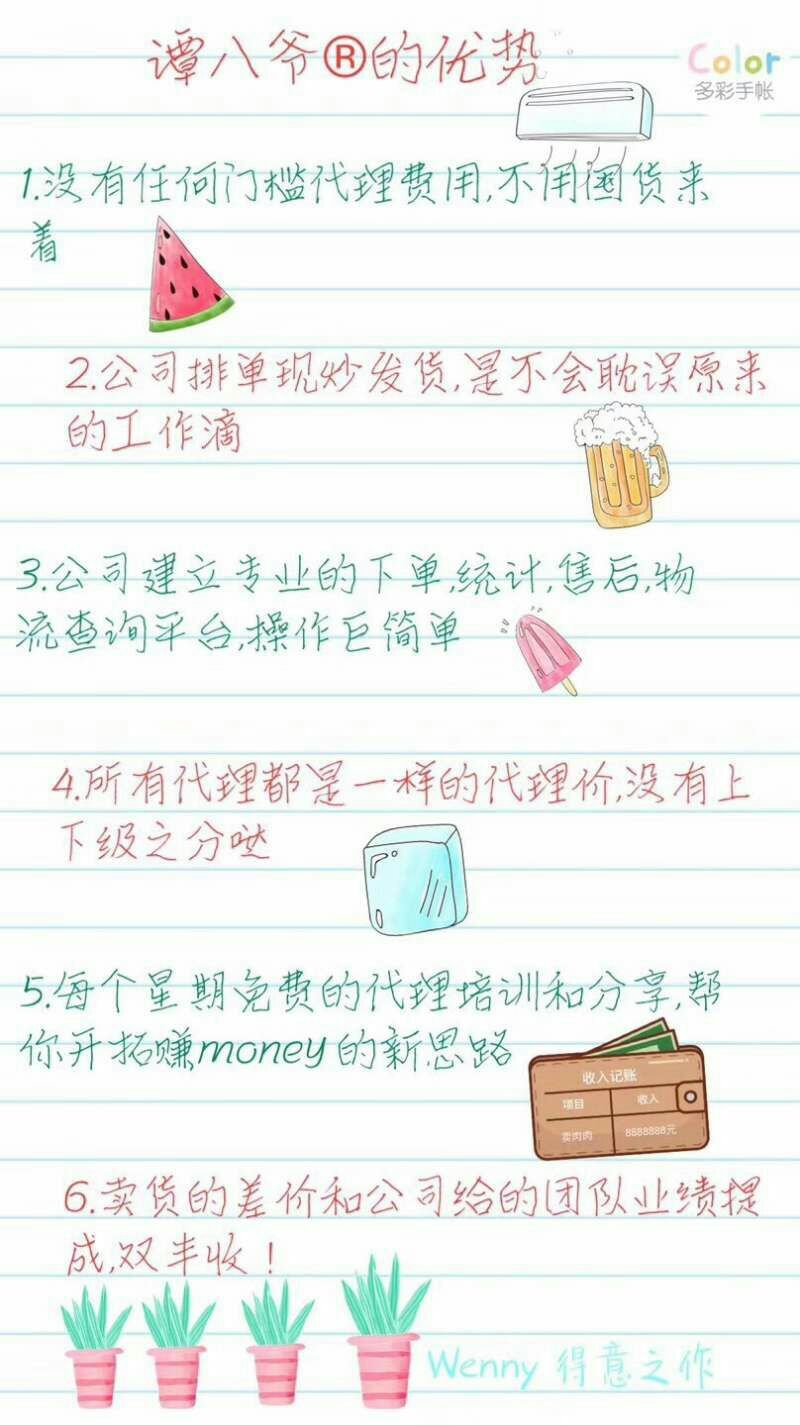 谭八爷®的优势
Color
多彩手帐
1.没有任何门槛代理费用,不用囤货来
着
2.公司排单现炒发货,是不会耽误原来
的工作滴
3.公司建立专业的下单,统计,售后,物
流查询平台,操作巨简单
4.所有代理都是一样的代理价,没有上
下级之分哒
5.每个星期免费的代理培训和分享,帮
你开拓赚money的新思路
收入记账
项目 收入
卖肉肉 8888888元
6.卖货的差价和公司给的团队业绩提
成,双丰收!
Wenny 得意之作